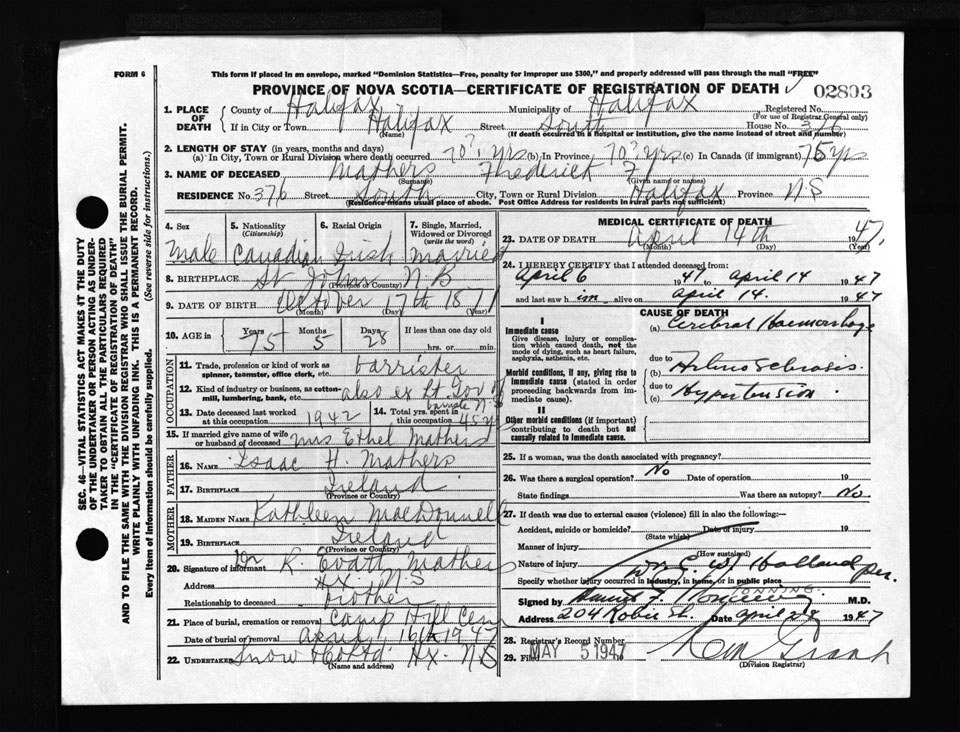 FORM 6
This form if placed in an envelope, marked "Dominion Statistics—Free, penalty for improper use $300," and properly addressed will pass through the mail "FREE"
PROVINCE OF NOVA SCOTIA—CERTIFICATE OF REGISTRATION OF DEATH
02803
1. PLACE OF DEATH
County of Halifax Municipality of Halifax Registered No.
(For use of Registrar General only)
If in City or Town Halifax Street South House No. 376
(Name) (If death occurred in a hospital or institution, give the name instead of street and number)
2. LENGTH OF STAY (in years, months and days)
(a) In City, Town or Rural Division where death occurred 70? yrs (b) In Province 70? yrs (c) In Canada (if immigrant) 75 yrs
3. NAME OF DECEASED Mathers Frederick F.
(Surname) (Given name or names)
RESIDENCE No. 376 Street South City, Town or Rural Division Halifax Province N.S
(Residence means usual place of abode. Post Office Address for residents in rural parts not sufficient)
4. Sex 5. Nationality (Citizenship) 6. Racial Origin 7. Single, Married, Widowed or Divorced (write the word)
Male Canadian Irish Married
8. BIRTHPLACE St John N.B
(Province or Country)
9. DATE OF BIRTH October 17th 1871
(Month) (Day) (Year)
10. AGE in Years Months Days If less than one day old
75 5 28 hrs. or min.
OCCUPATION
11. Trade, profession or kind of work as spinner, teamster, office clerk, etc. barrister
12. Kind of industry or business, as cotton-mill, lumbering, bank, etc. also ex Lt Gov of
13. Date deceased last worked at this occupation 1942
14. Total yrs. spent in this occupation 45 yrs
15. If married give name of wife or husband of deceased Mrs Ethel Mathers
FATHER
16. NAME Isaac H. Mathers
17. BIRTHPLACE Ireland
(Province or Country)
MOTHER
18. MAIDEN NAME Kathleen MacDonnell
19. BIRTHPLACE Ireland
(Province or Country)
20. Signature of informant Dr K. Evatt Mathers
Address Hx. N.S
Relationship to deceased brother
21. Place of burial, cremation or removal Camp Hill Cem
Date of burial or removal April 16th 1947
22. UNDERTAKER Snow Co Ltd Hx. N.S
(Name and address)
MEDICAL CERTIFICATE OF DEATH
23. DATE OF DEATH April 14th 1947
(Month) (Day) (Year)
24. I HEREBY CERTIFY that I attended deceased from:
April 6 1947 to April 14 1947
and last saw him alive on April 14. 1947
CAUSE OF DEATH
I
Immediate cause
Give disease, injury or complication which caused death, not the mode of dying, such as heart failure, asphyxia, asthenia, etc.
(a) Cerebral Haemorrhage
due to
Morbid conditions, if any, giving rise to immediate cause (stated in order proceeding backwards from immediate cause).
(b) Arteriosclerosis
due to
(c) Hypertension
II
Other morbid conditions (if important) contributing to death but not causally related to immediate cause.
25. If a woman, was the death associated with pregnancy?
26. Was there a surgical operation? No Date of operation 19
State findings Was there an autopsy? No.
27. If death was due to external causes (violence) fill in also the following:—
Accident, suicide or homicide? Date of injury 19
(State which)
Manner of injury
(How sustained)
Nature of injury
Specify whether injury occurred in industry, in home, or in public place
Signed by M.D.
Address 204 Robie St. Date April 28 1947
28. Registrar's Record Number
29. Filed MAY 5 1947
(Division Registrar)
SEC. 46—VITAL STATISTICS ACT MAKES IT THE DUTY
OF THE UNDERTAKER OR PERSON ACTING AS UNDER-
TAKER TO OBTAIN ALL THE PARTICULARS REQUIRED
IN THE "CERTIFICATE OF REGISTRATION OF DEATH"
AND TO FILE THE SAME WITH THE DIVISION REGISTRAR WHO SHALL ISSUE THE BURIAL PERMIT.
WRITE PLAINLY WITH UNFADING INK. THIS IS A PERMANENT RECORD.
Every item of information should be carefully supplied. (See reverse side for instructions.)